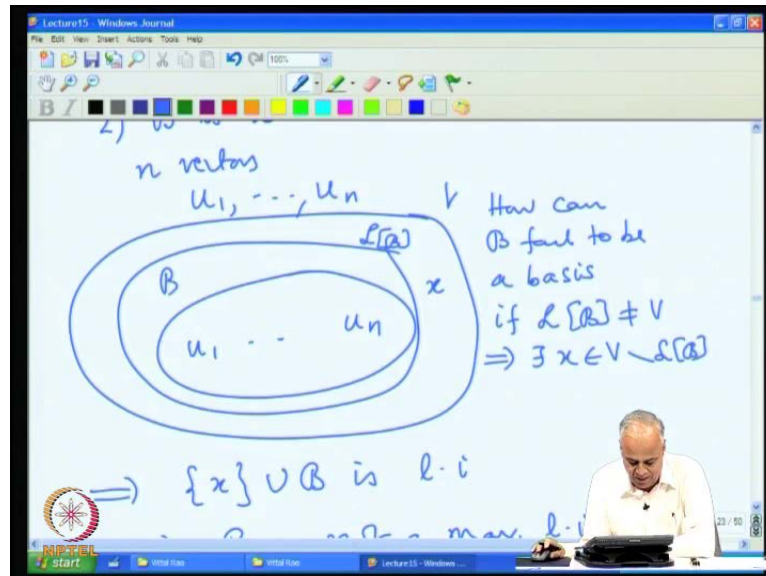 Lecture15 - Windows Journal
File Edit View Insert Actions Tools Help
100%
B I
2)
n vectors
u₁, ---, uₙ
V
How can
B fail to be
a basis
if L[B] ≠ V
⇒ ∃ x ∈ V \ L[B]
L[B]
B
x
u₁ - - uₙ
⇒ {x} ∪ B is l.i
max. l.i
23 / 50
NPTEL
start
Vittal Rao
Vittal Rao
Lecture15 - Windows ...